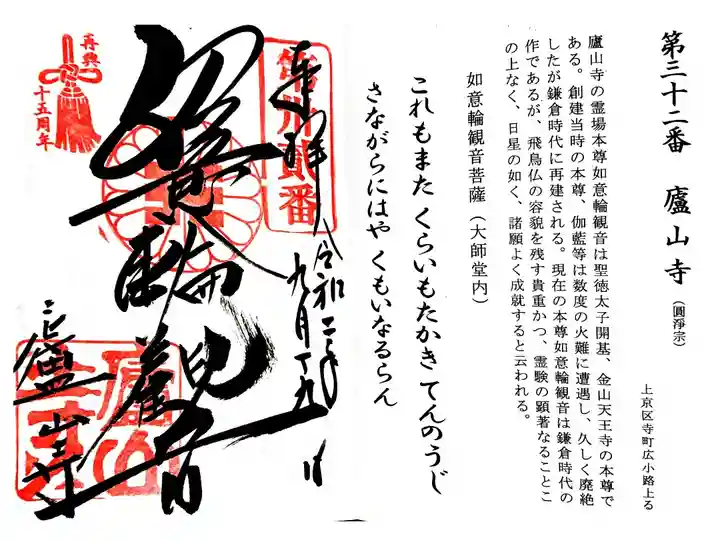 第三十二番　廬山寺（圓淨宗）
上京区寺町広小路上る
廬山寺の霊場本尊如意輪観音は聖徳太子開基、金山天王寺の本尊で
ある。創建当時の本尊、伽藍等は数度の火難に遭遇し、久しく廃絶
したが鎌倉時代に再建される。現在の本尊如意輪観音は鎌倉時代の
作であるが、飛鳥仏の容貌を残す貴重かつ、霊験の顕著なることこ
の上なく、日星の如く、諸願よく成就すると云われる。
如意輪観音菩薩（大師堂内）
これもまた くらいもたかき てんのうじ
さながらにはや くもいなるらん
奉拝
令和二年
九月十九日
如意輪観音
廬山寺
再興
十五周年